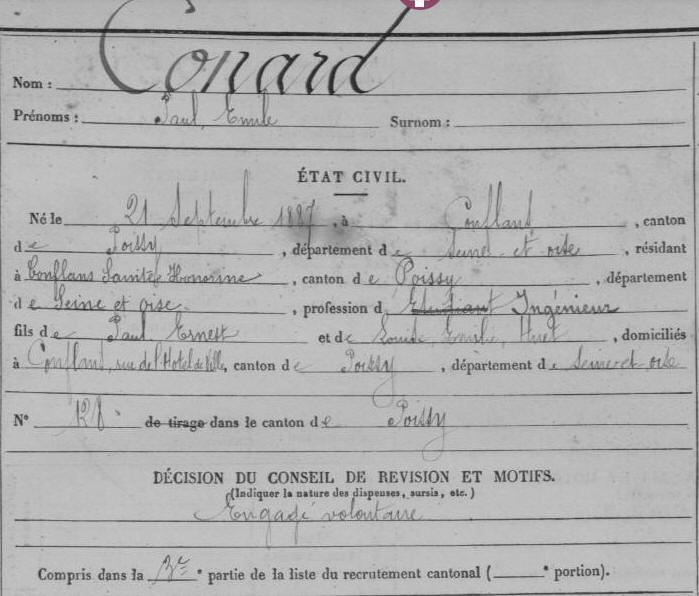 Nom : Conard
Prénoms : Paul, Emile Surnom :
ÉTAT CIVIL.
Né le 21 Septembre 1887, à Conflans, canton
de Poissy, département de Seine et oise, résidant
à Conflans Sainte Honorine, canton de Poissy, département
de Seine et oise, profession d Etudiant Ingénieur
fils de Paul Ernest et de Louise, Emilie, Huet, domiciliés
à Conflans, rue de l'Hotel de Ville, canton de Poissy, département de Seine et oise
N° 128 de tirage dans le canton de Poissy
DÉCISION DU CONSEIL DE REVISION ET MOTIFS.
(Indiquer la nature des dispenses, sursis, etc.)
Engagé volontaire
Compris dans la 3e partie de la liste du recrutement cantonal ( portion).